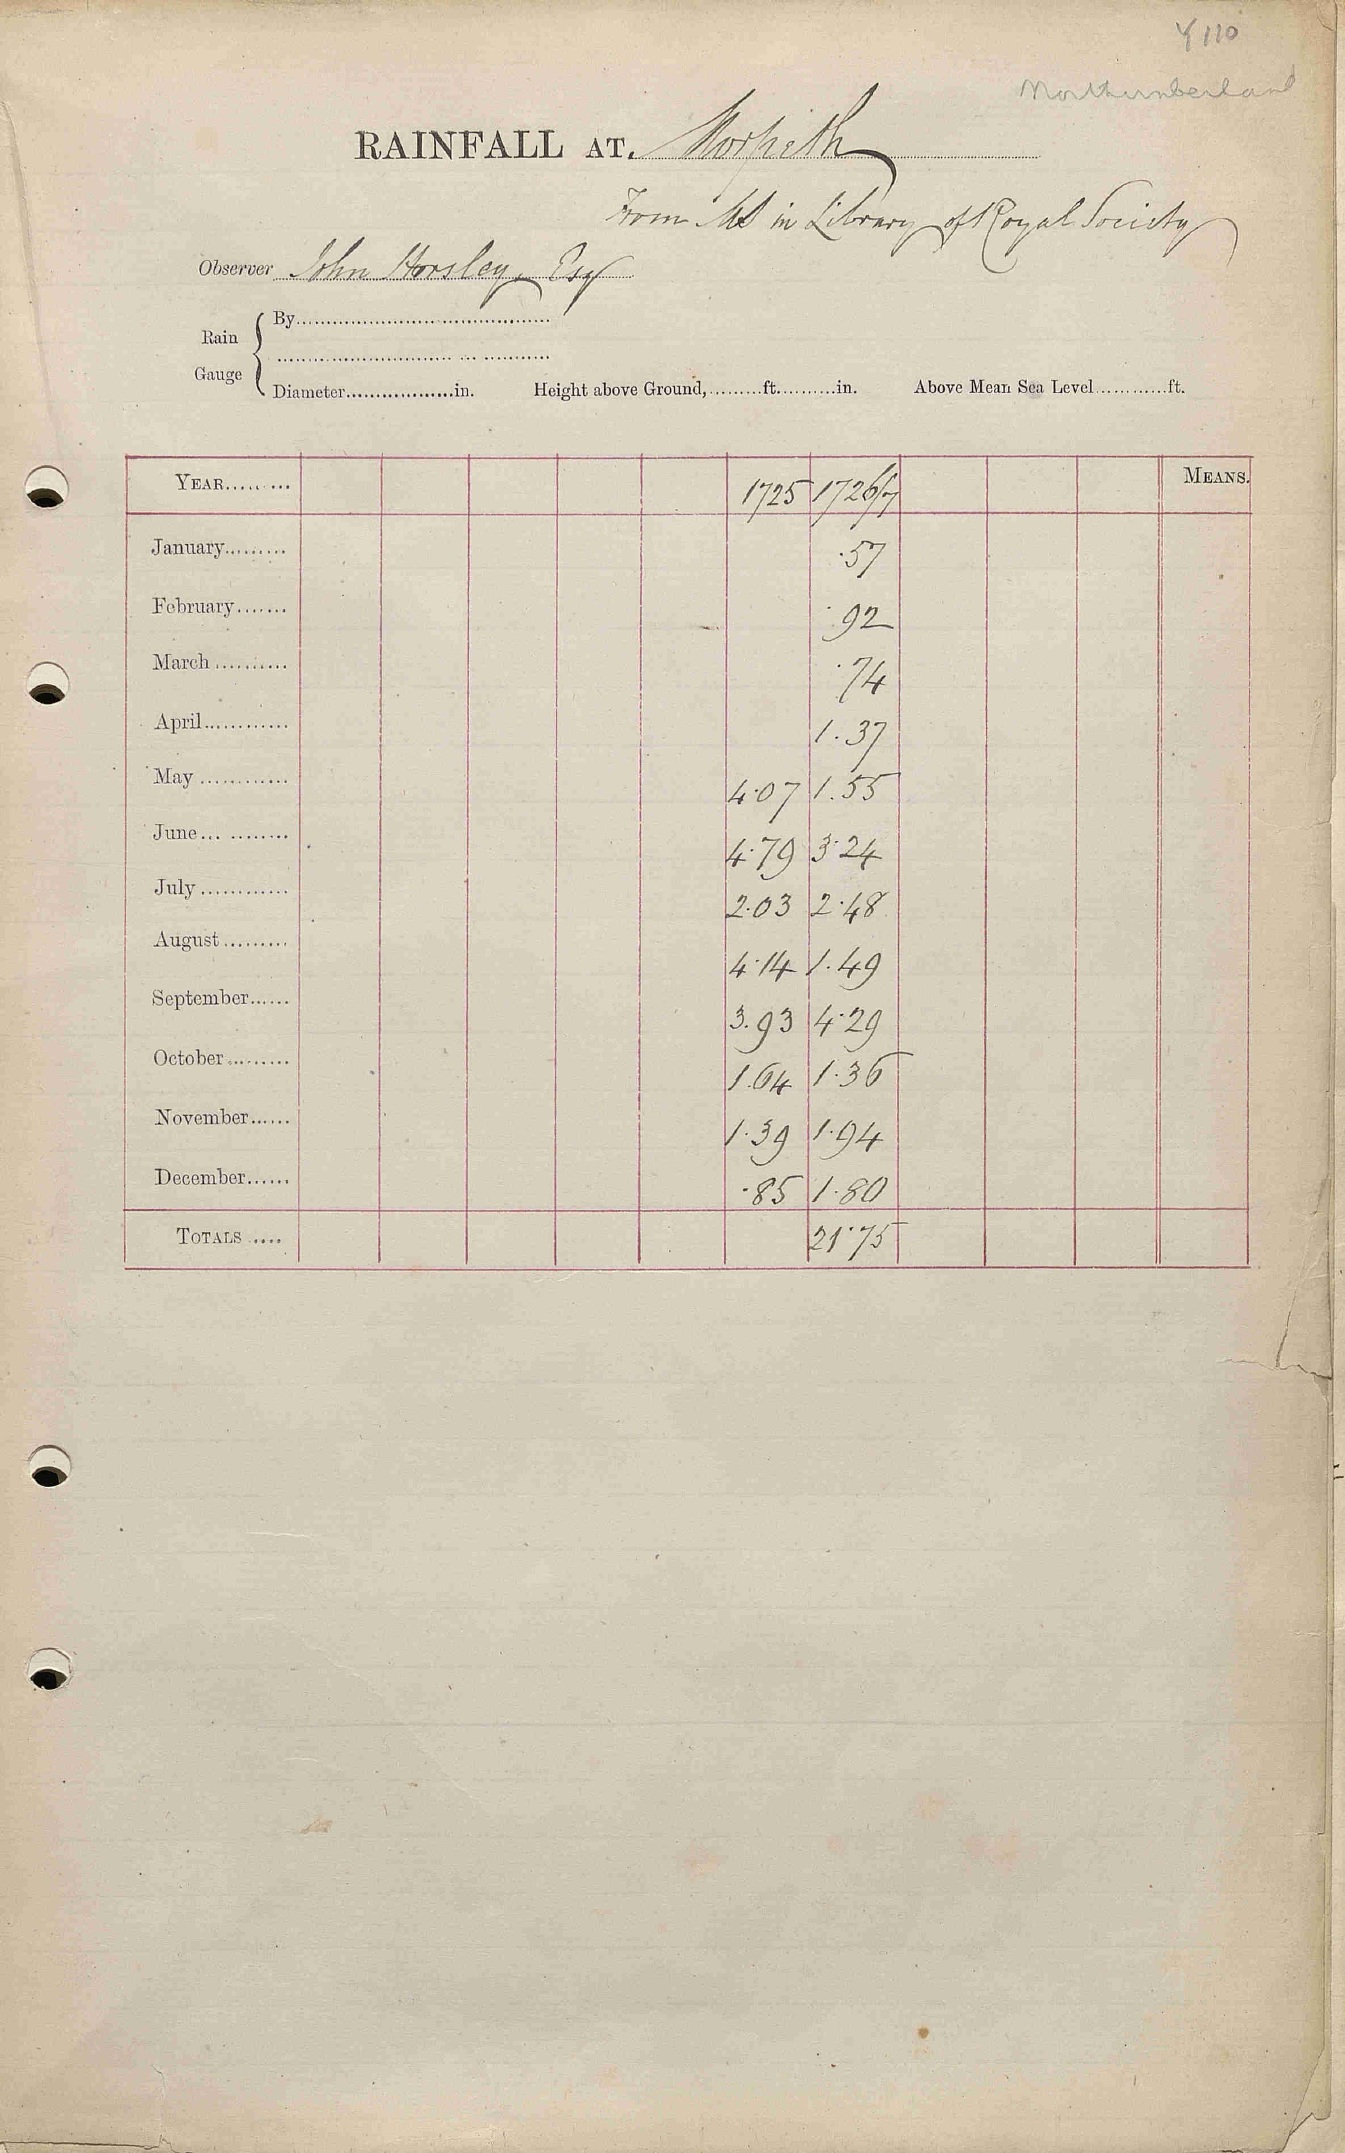 Y110
Northumberland
RAINFALL AT. Morpeth
From MS in Library of Royal Society
Observer John Horsley, Esq
Rain Gauge
By
Diameter in. Height above Ground, ft. in. Above Mean Sea Level ft.
YEAR 1725 1726/7 MEANS.
January .57
February .92
March .74
April 1.37
May 4.07 1.55
June 4.79 3.24
July 2.03 2.48
August 4.14 1.49
September 3.93 4.29
October 1.64 1.36
November 1.39 1.94
December .85 1.80
TOTALS 21.75